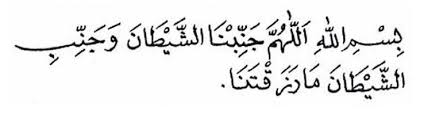 بِسْمِ اللهِ اَللّٰهُمَّ جَنِّبْنَا الشَّيْطَانَ وَجَنِّبِ
الشَّيْطَانَ مَارَزَقْتَنَا.